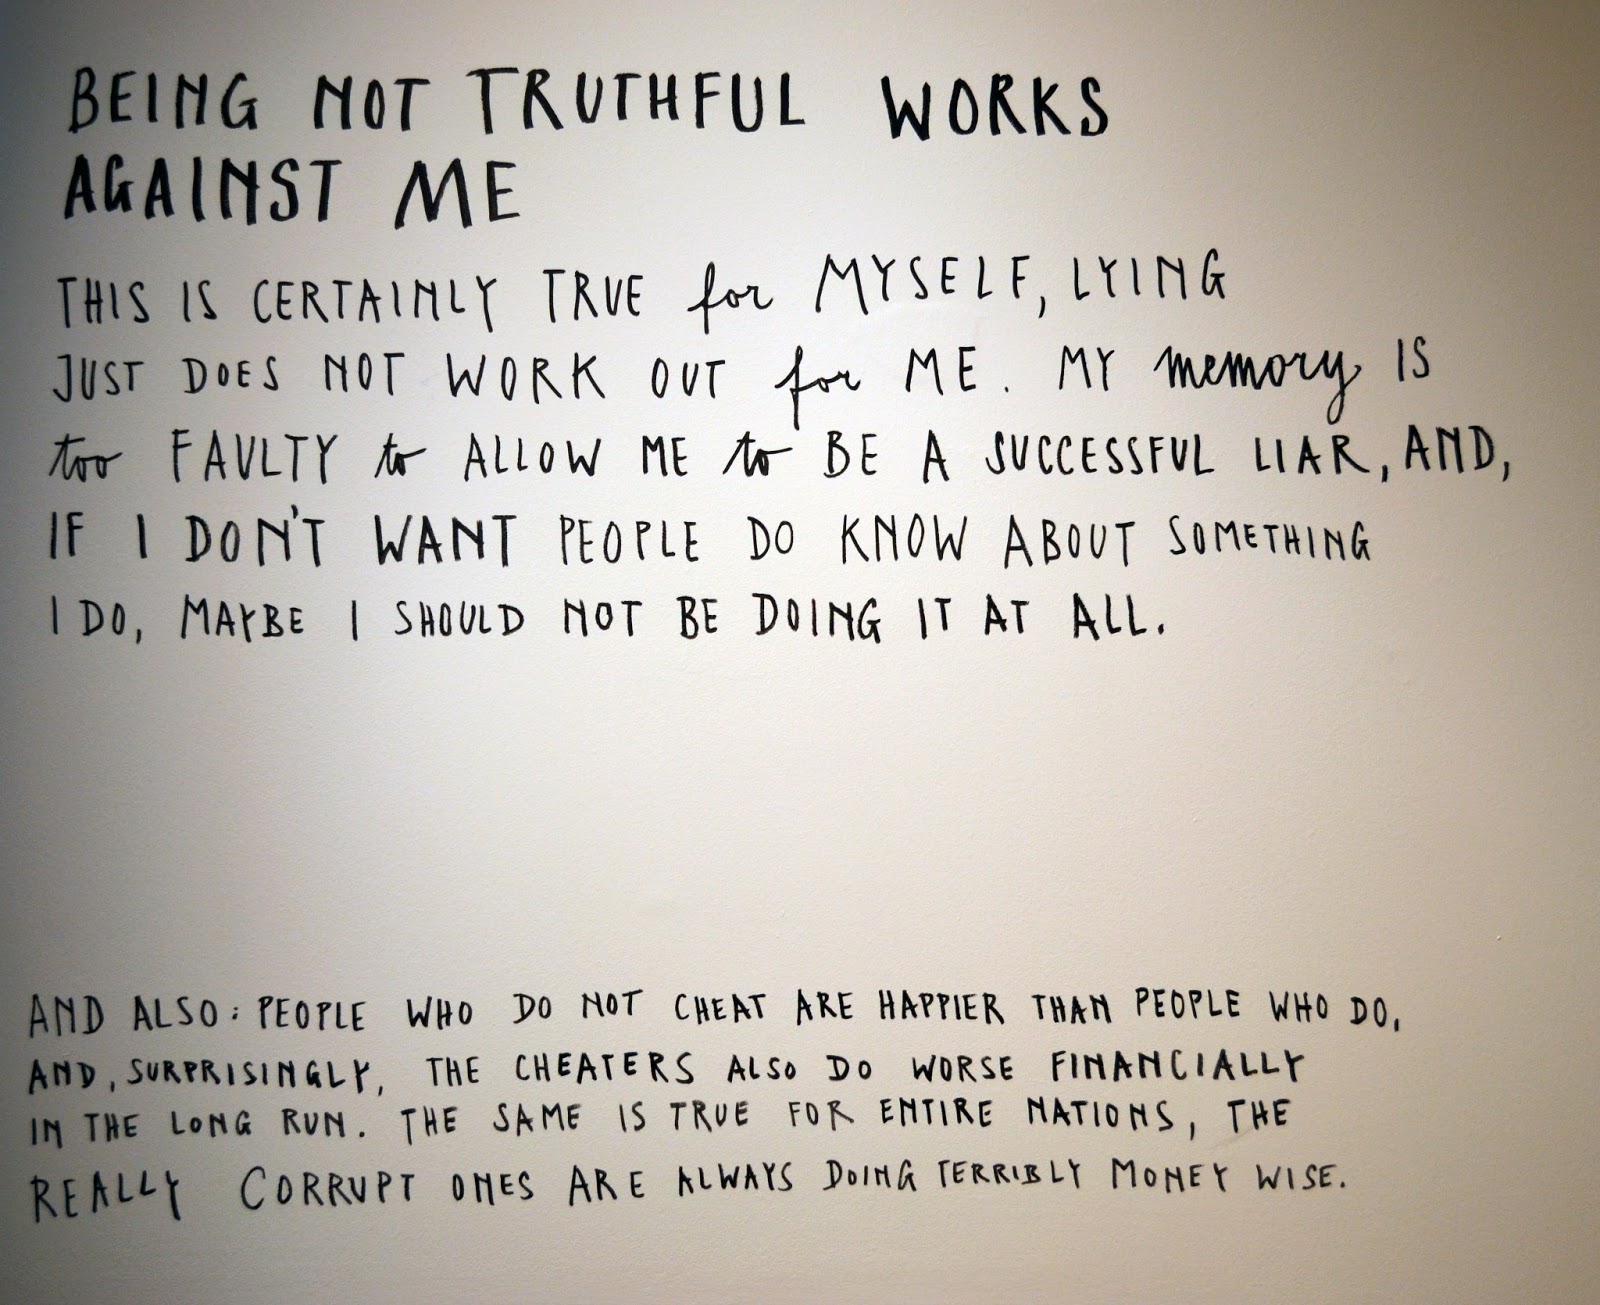 BEING NOT TRUTHFUL WORKS
AGAINST ME
THIS IS CERTAINLY TRUE for MYSELF, LYING
JUST DOES NOT WORK OUT for ME. MY memory IS
too FAULTY to ALLOW ME to BE A SUCCESSFUL LIAR, AND,
IF I DON'T WANT PEOPLE DO KNOW ABOUT SOMETHING
I DO, MAYBE I SHOULD NOT BE DOING IT AT ALL.
AND ALSO: PEOPLE WHO DO NOT CHEAT ARE HAPPIER THAN PEOPLE WHO DO,
AND, SURPRISINGLY, THE CHEATERS ALSO DO WORSE FINANCIALLY
IN THE LONG RUN. THE SAME IS TRUE FOR ENTIRE NATIONS, THE
REALLY CORRUPT ONES ARE ALWAYS DOING TERRIBLY MONEY WISE.